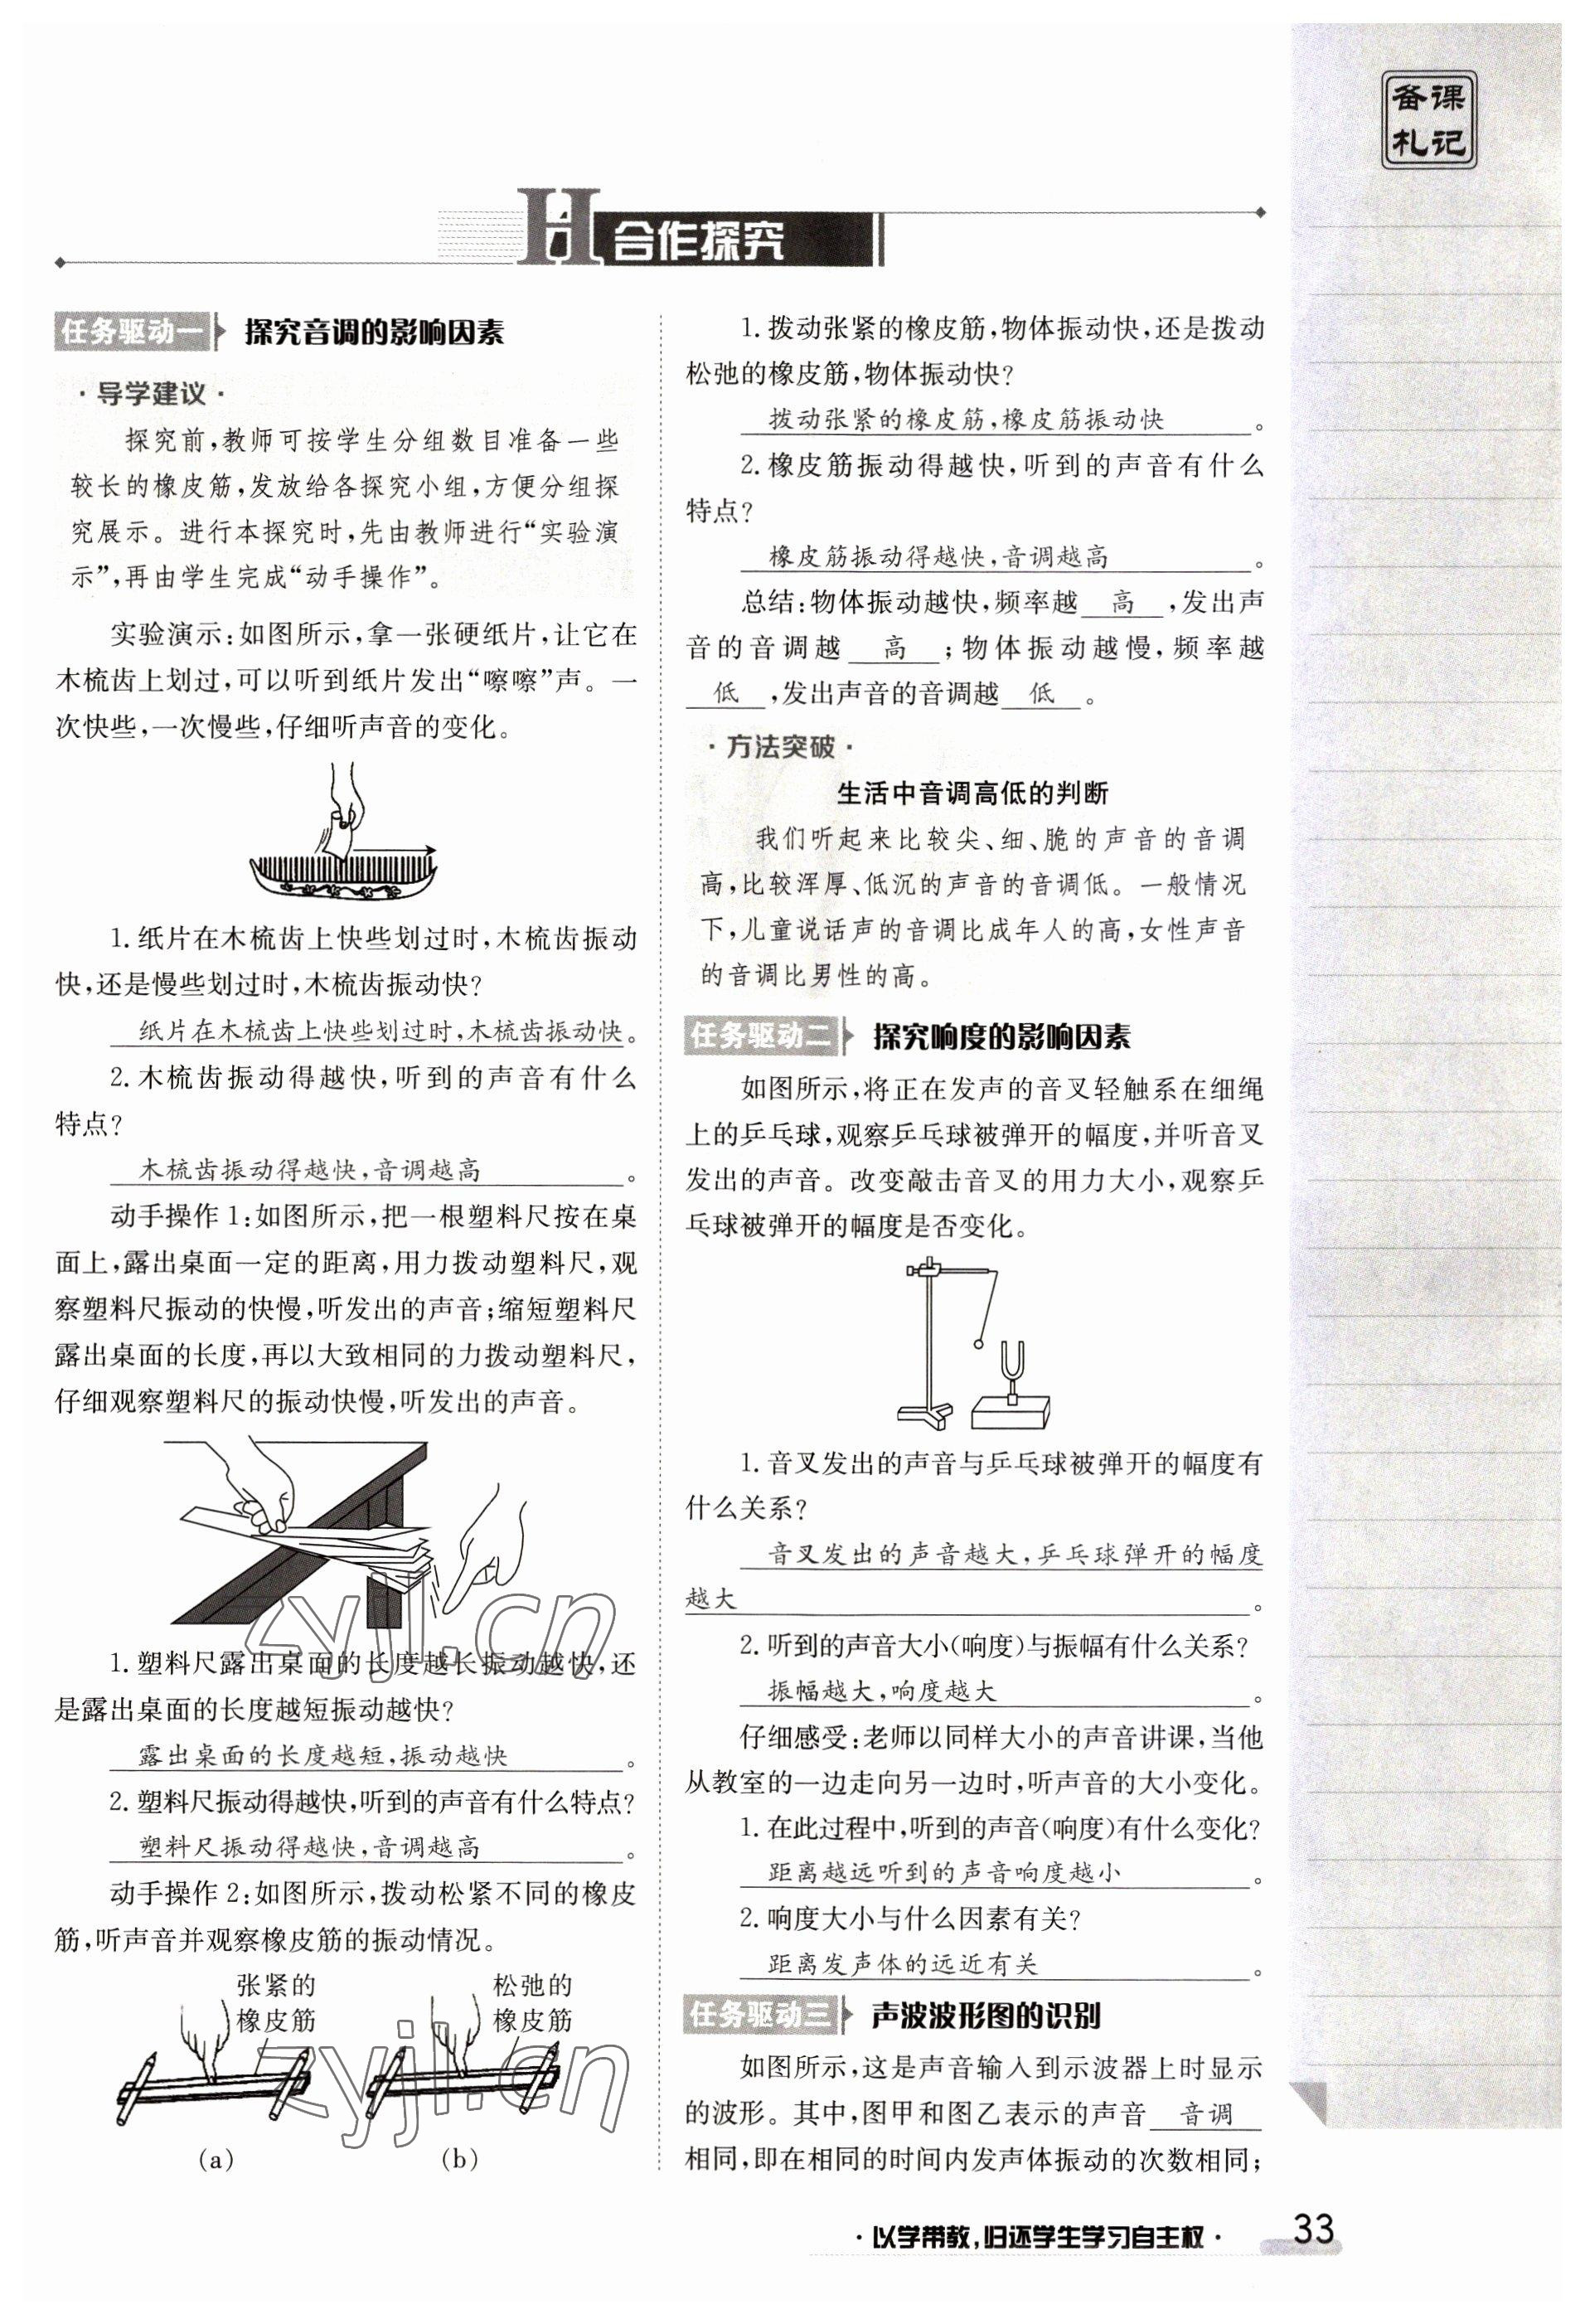 备课
札记
合作探究
任务驱动一 探究音调的影响因素
·导学建议·
探究前,教师可按学生分组数目准备一些
较长的橡皮筋,发放给各探究小组,方便分组探
究展示。进行本探究时,先由教师进行“实验演
示”,再由学生完成“动手操作”。
实验演示:如图所示,拿一张硬纸片,让它在
木梳齿上划过,可以听到纸片发出“嚓嚓”声。一
次快些,一次慢些,仔细听声音的变化。
1.纸片在木梳齿上快些划过时,木梳齿振动
快,还是慢些划过时,木梳齿振动快?
纸片在木梳齿上快些划过时,木梳齿振动快。
2.木梳齿振动得越快,听到的声音有什么
特点?
木梳齿振动得越快,音调越高。
动手操作1:如图所示,把一根塑料尺按在桌
面上,露出桌面一定的距离,用力拨动塑料尺,观
察塑料尺振动的快慢,听发出的声音;缩短塑料尺
露出桌面的长度,再以大致相同的力拨动塑料尺,
仔细观察塑料尺的振动快慢,听发出的声音。
zyjl.cn
1.塑料尺露出桌面的长度越长振动越快,还
是露出桌面的长度越短振动越快?
露出桌面的长度越短,振动越快。
2.塑料尺振动得越快,听到的声音有什么特点?
塑料尺振动得越快,音调越高。
动手操作2:如图所示,拨动松紧不同的橡皮
筋,听声音并观察橡皮筋的振动情况。
张紧的
橡皮筋
松弛的
橡皮筋
zyjl.cn
(a)
(b)
1.拨动张紧的橡皮筋,物体振动快,还是拨动
松弛的橡皮筋,物体振动快?
拨动张紧的橡皮筋,橡皮筋振动快。
2.橡皮筋振动得越快,听到的声音有什么
特点?
橡皮筋振动得越快,音调越高。
总结:物体振动越快,频率越 高 ,发出声
音的音调越 高 ;物体振动越慢,频率越
低 ,发出声音的音调越 低 。
·方法突破·
生活中音调高低的判断
我们听起来比较尖、细、脆的声音的音调
高,比较浑厚、低沉的声音的音调低。一般情况
下,儿童说话声的音调比成年人的高,女性声音
的音调比男性的高。
任务驱动二 探究响度的影响因素
如图所示,将正在发声的音叉轻触系在细绳
上的乒乓球,观察乒乓球被弹开的幅度,并听音叉
发出的声音。改变敲击音叉的用力大小,观察乒
乓球被弹开的幅度是否变化。
1.音叉发出的声音与乒乓球被弹开的幅度有
什么关系?
音叉发出的声音越大,乒乓球弹开的幅度
越大。
2.听到的声音大小(响度)与振幅有什么关系?
振幅越大,响度越大。
仔细感受:老师以同样大小的声音讲课,当他
从教室的一边走向另一边时,听声音的大小变化。
1.在此过程中,听到的声音(响度)有什么变化?
距离越远听到的声音响度越小。
2.响度大小与什么因素有关?
距离发声体的远近有关。
任务驱动三 声波波形图的识别
如图所示,这是声音输入到示波器上时显示
的波形。其中,图甲和图乙表示的声音 音调
相同,即在相同的时间内发声体振动的次数相同;
·以学带教,归还学生学习自主权·
33